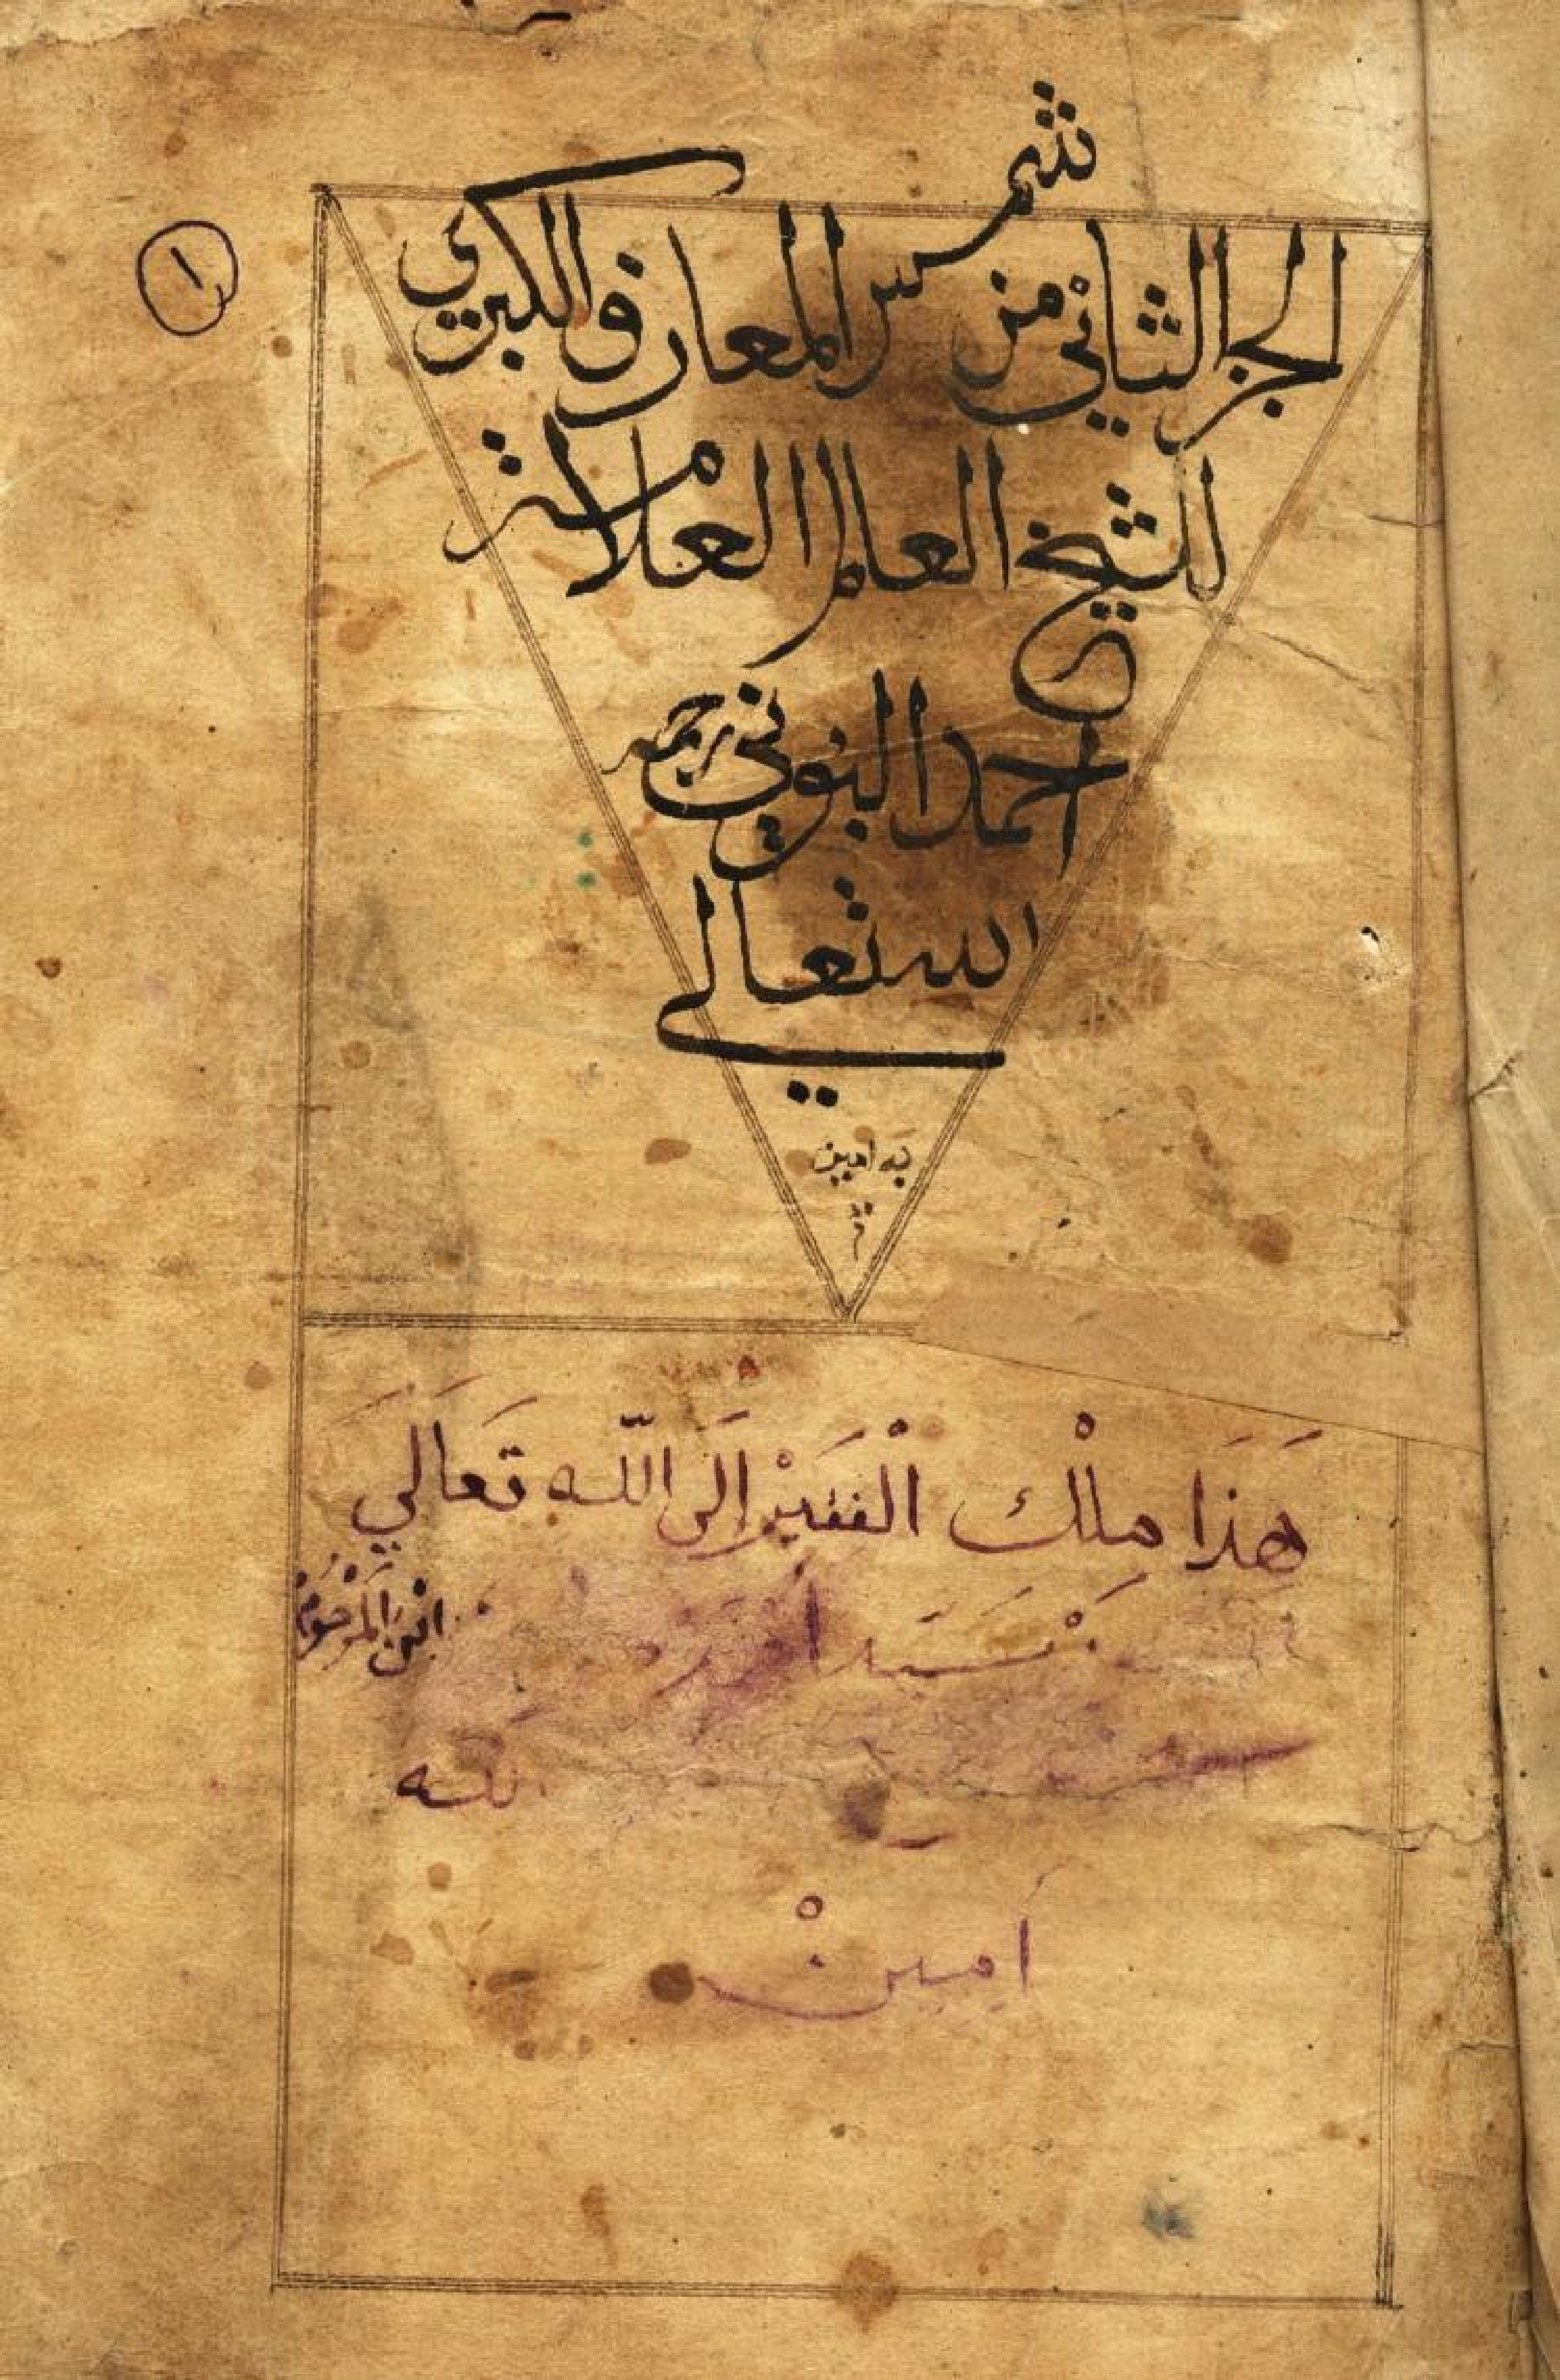 ١
الجز الثاني من شمس المعارف الكبري
للشيخ العالم العلامة
احمد البوني رحمه
الله تعالي
به امين
هَذَا مِلْك الْفَقِيْر إِلَى اللّه تَعَالَي
السيد أحمد ابن المرحوم
الله
اَمِيِنْ